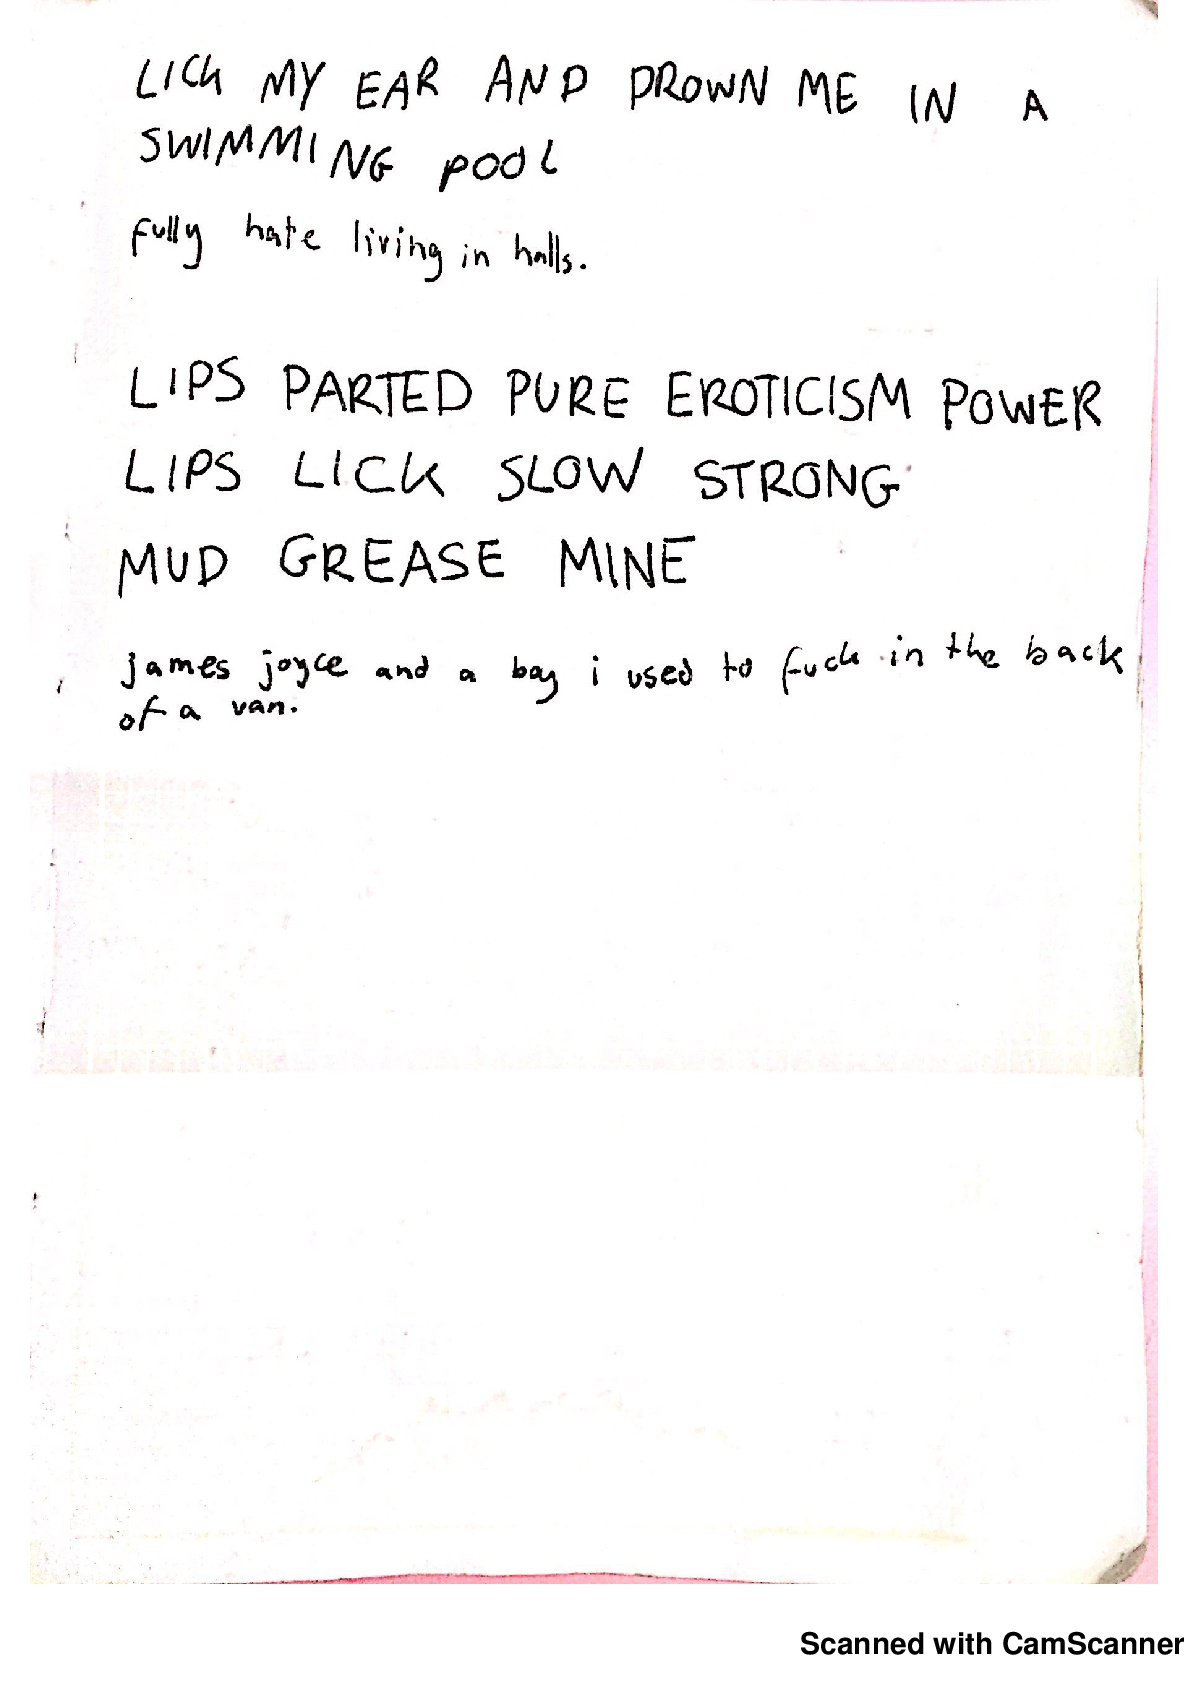 LICK MY EAR AND DROWN ME IN A
SWIMMING POOL
fully hate living in halls.
LIPS PARTED PURE EROTICISM POWER
LIPS LICK SLOW STRONG
MUD GREASE MINE
james joyce and a boy i used to fuck in the back
of a van.
Scanned with CamScanner